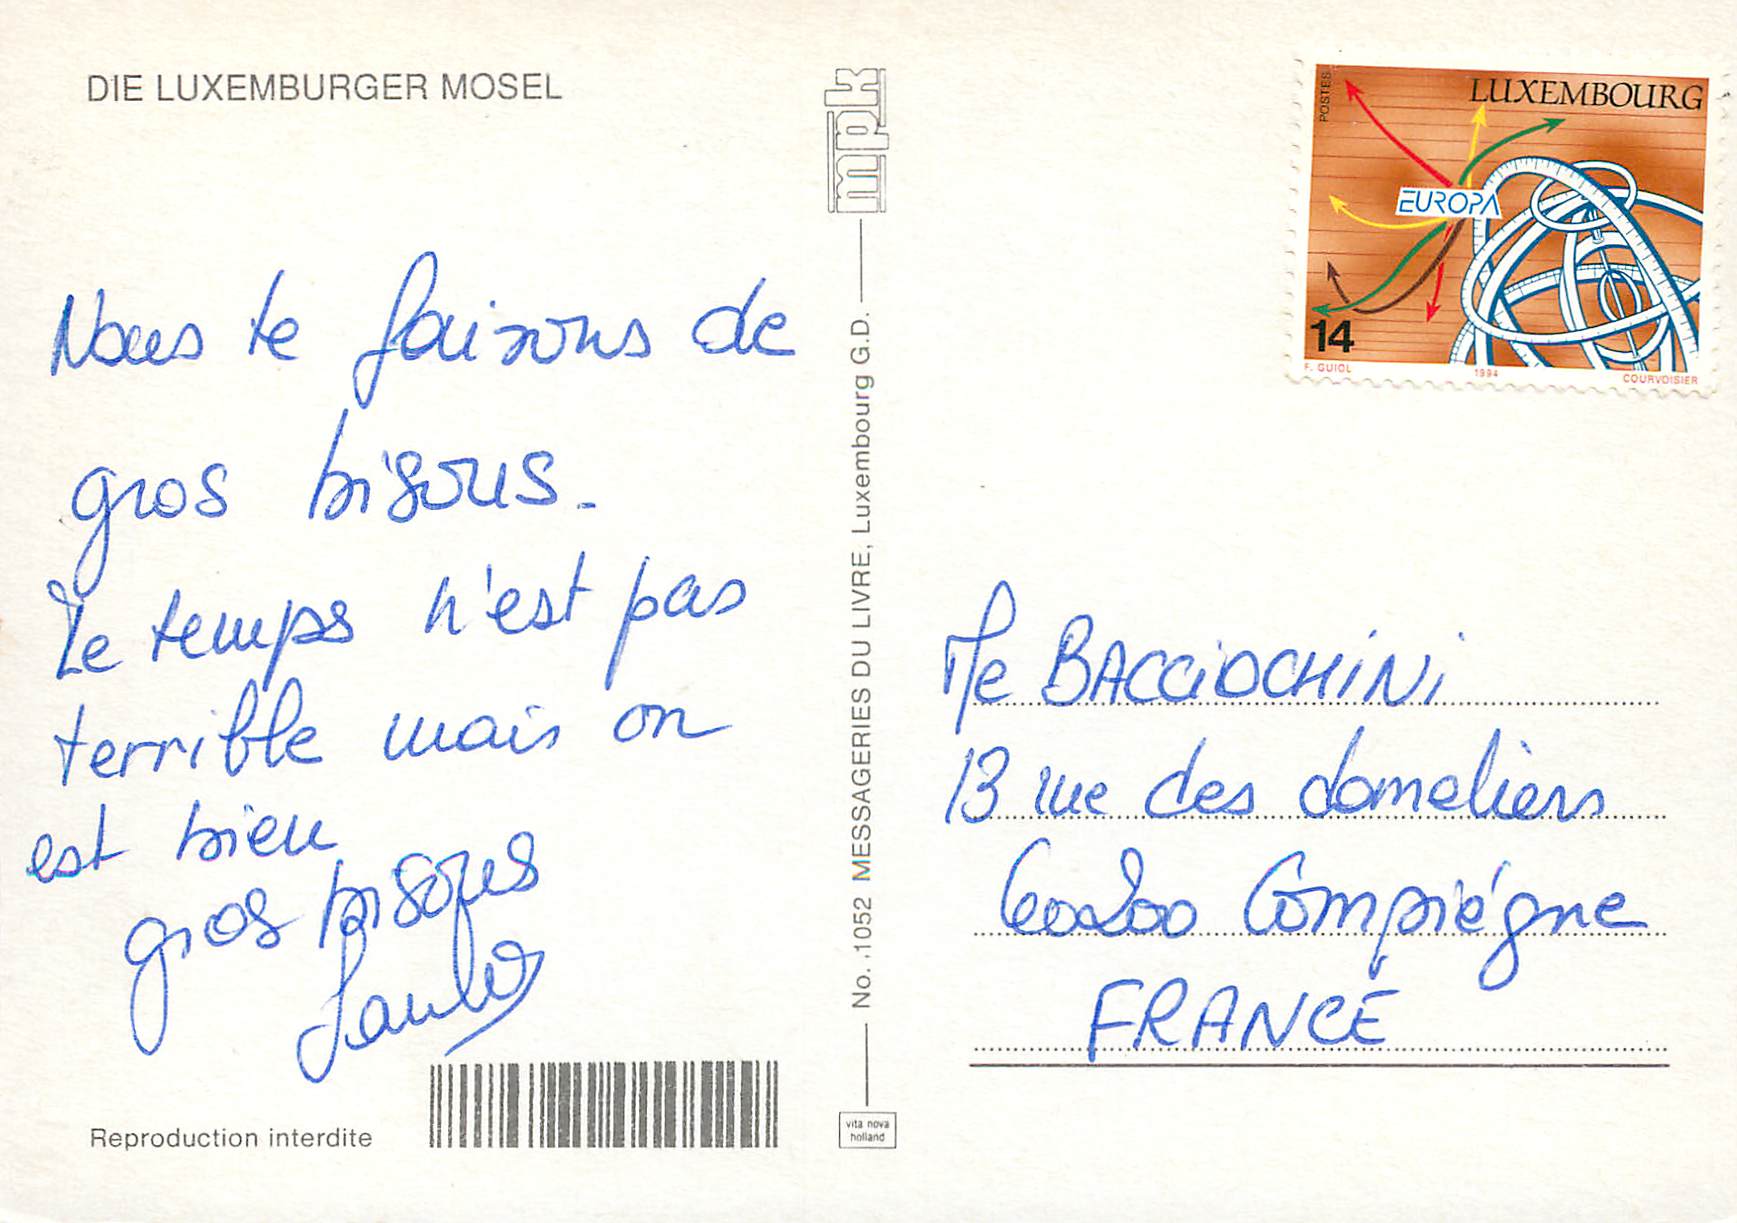 DIE LUXEMBURGER MOSEL
Nous te faisons de
gros bisous.
Le temps n'est pas
terrible mais on
est bien
gros bisous
Reproduction interdite
mpk
No. 1052 MESSAGERIES DU LIVRE, Luxembourg G.D.
vita nova
holland
POSTES
LUXEMBOURG
EUROPA
14
F. GUIOL
1994
COURVOISIER
Me BACCiOCHiNi
13 rue des domeliers
60200 Compiégne
FRANCE